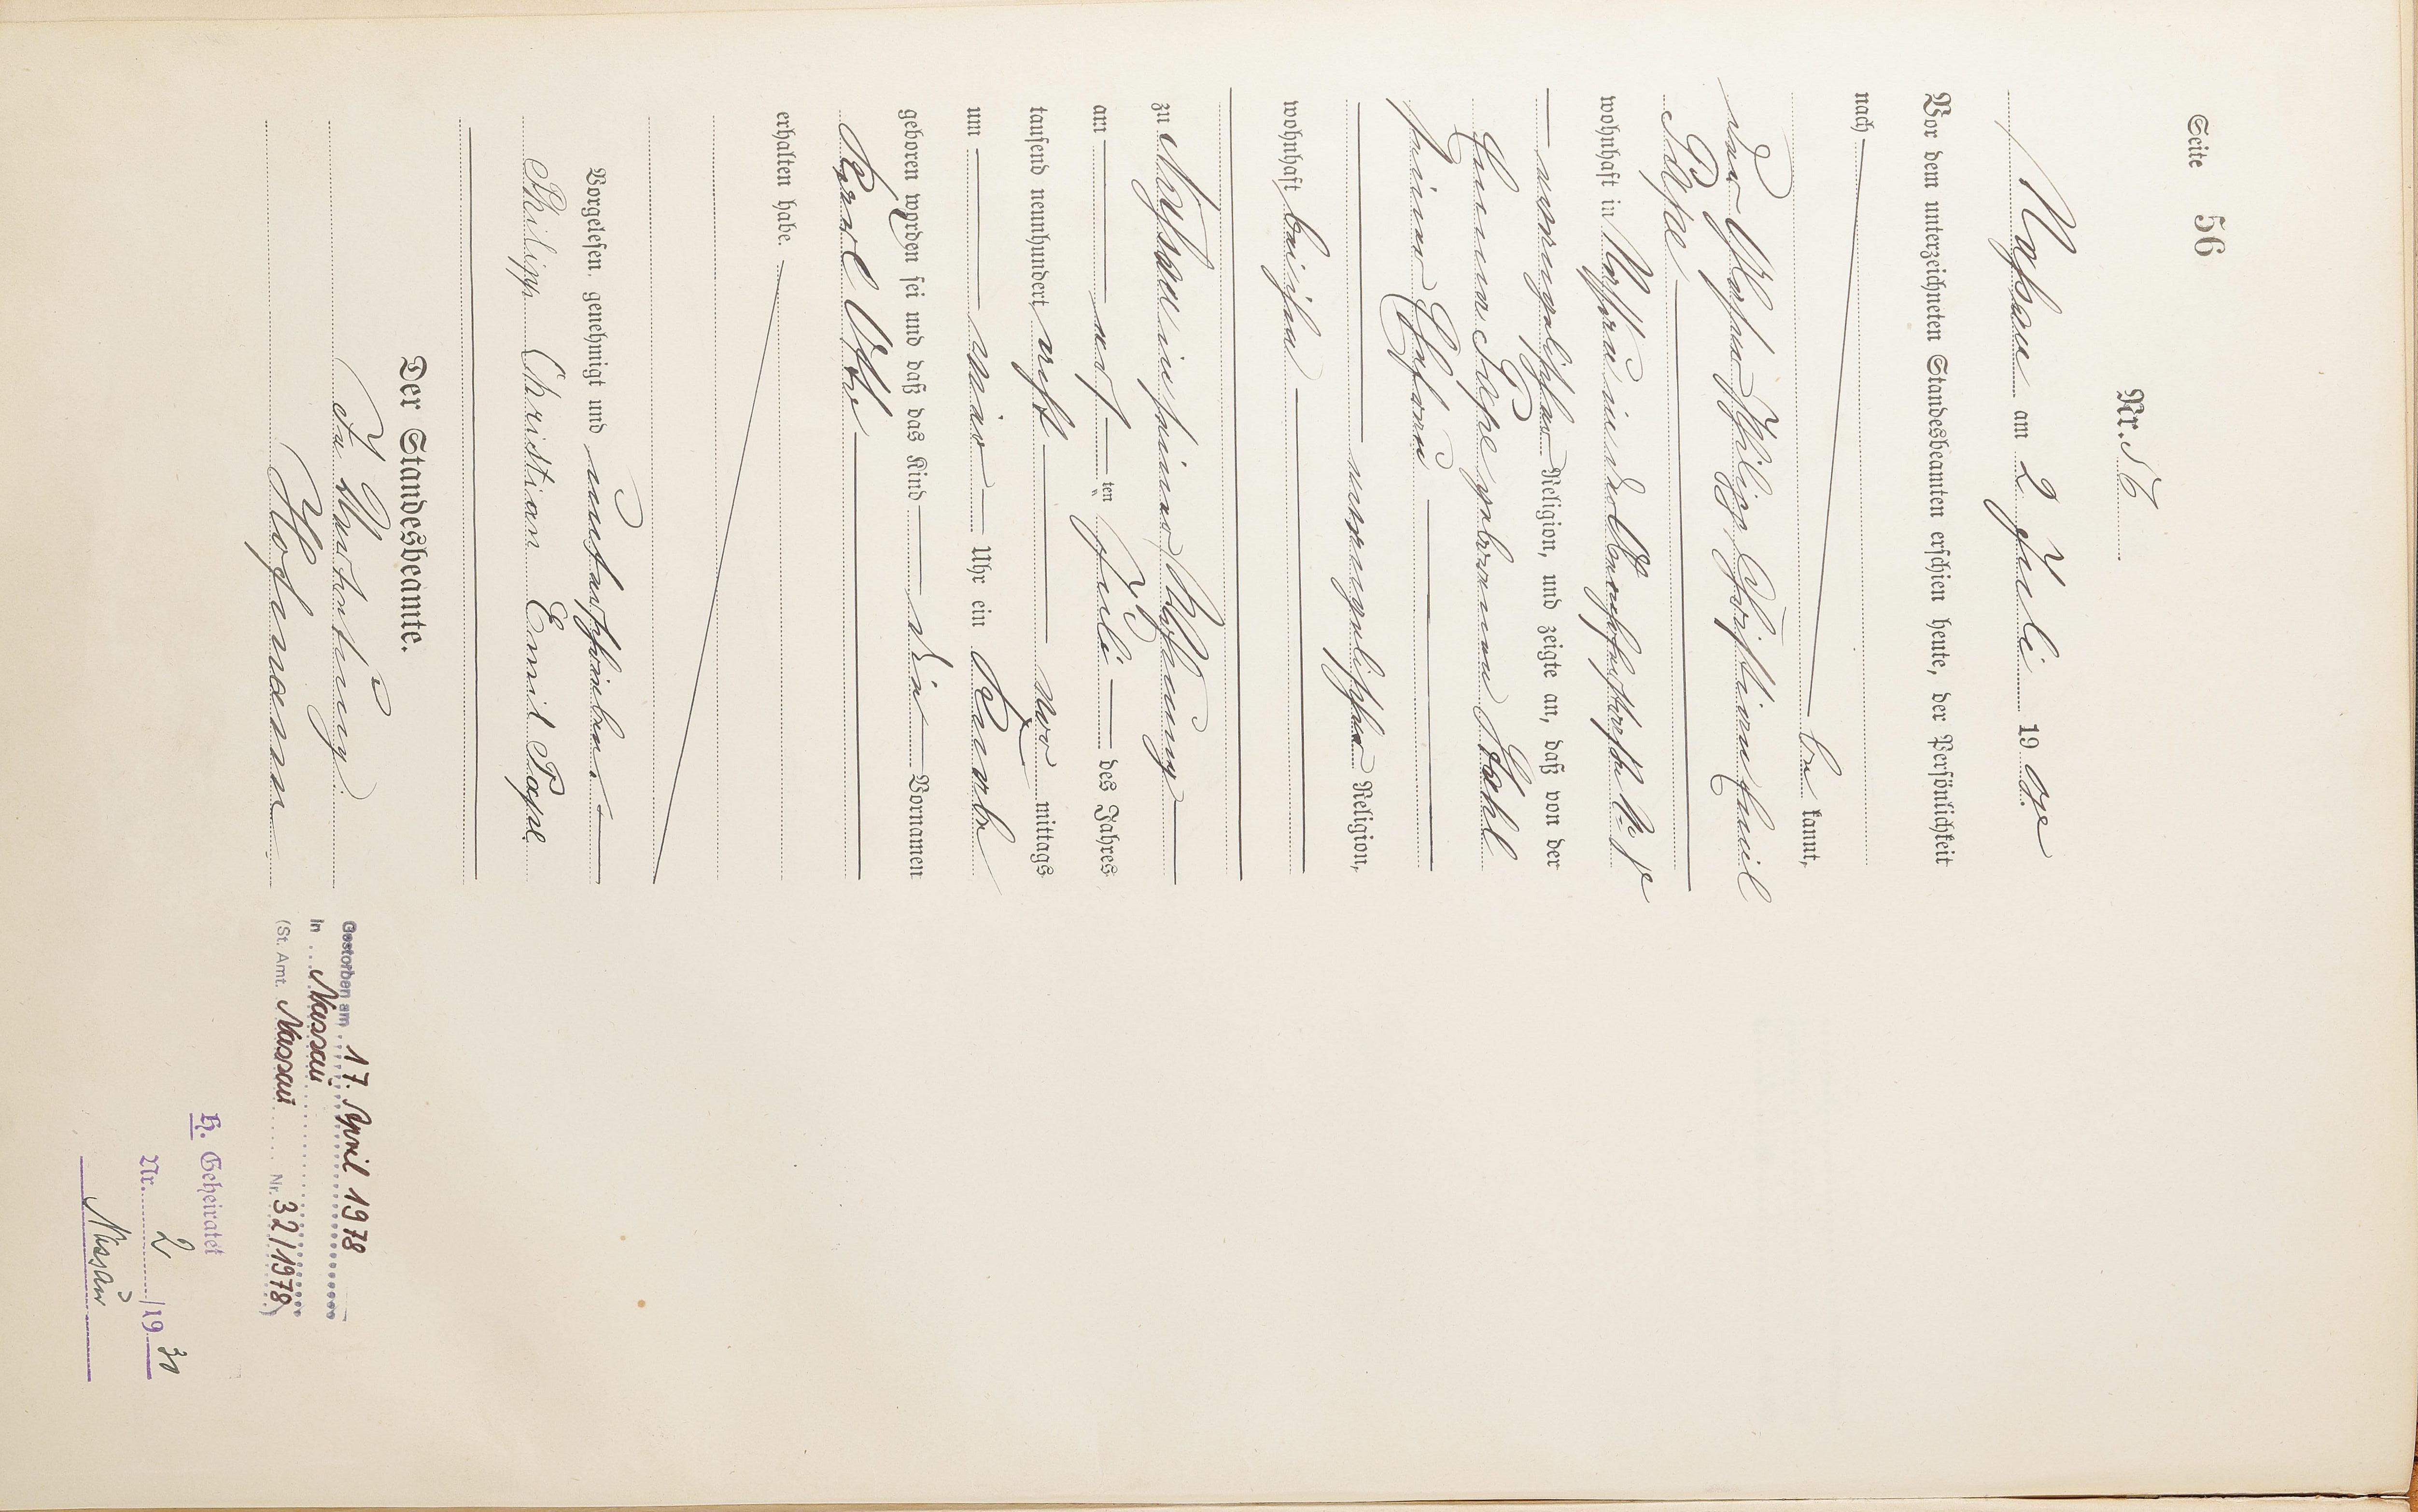 Seite 56
Nr. 56
Nassau am 2 Juli 19 08
Vor dem unterzeichneten Standesbeamten erschien heute, der Persönlichkeit
nach
be kannt,
der Philipp Christian Emil
Pape
wohnhaft in Nassau in der
evangelischer Religion, und zeigte an, daß von der
Emma Pape geborenen
seiner Ehefrau
evangelischer Religion,
wohnhaft bei ihm
zu Nassau in seiner Wohnung
am ten Juli des Jahres
tausend neunhundert acht Vor mittags
um Uhr ein Knabe
geboren worden sei und daß das Kind die Vornamen
Karl Otto
erhalten habe.
Vorgelesen, genehmigt und unterschrieben
Philipp Christian Emil Pape
Der Standesbeamte.
In Vertretung
Hofmann
Gestorben am 17. April 1978
in Nassau
(St. Amt. Nassau Nr. 32/1978)
H. Geheiratet
Nr. 2 /19 30
Nassau